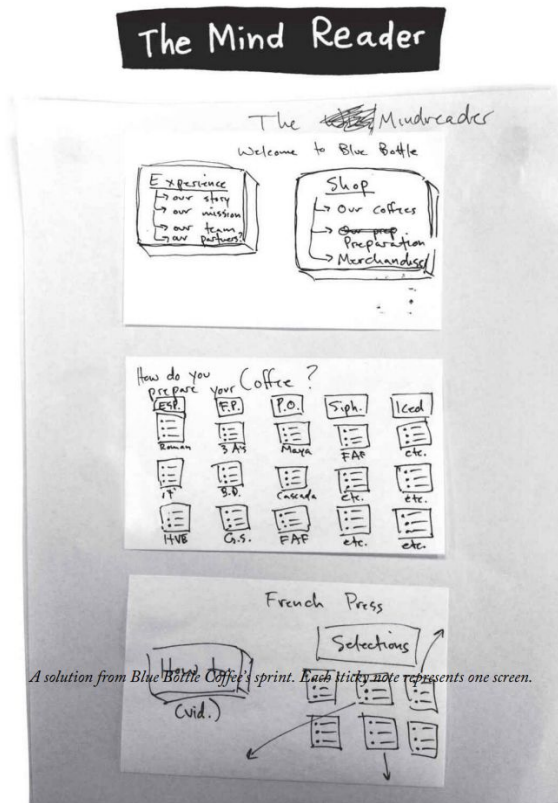 The Mind Reader
The Mindreader
Welcome to Blue Bottle
Experience
our story
our mission
our team
our partners?
Shop
Our coffees
Our prep
Preparation
Merchandise
How do you
prepare your Coffee?
ESP. F.P. P.O. Siph. Iced
Roman 3 A's Maya FAF etc.
17 Cascada etc. etc.
HVB G.S. FAF etc. etc.
French Press
Selections
How to
(vid.)
A solution from Blue Bottle Coffee's sprint. Each sticky note represents one screen.